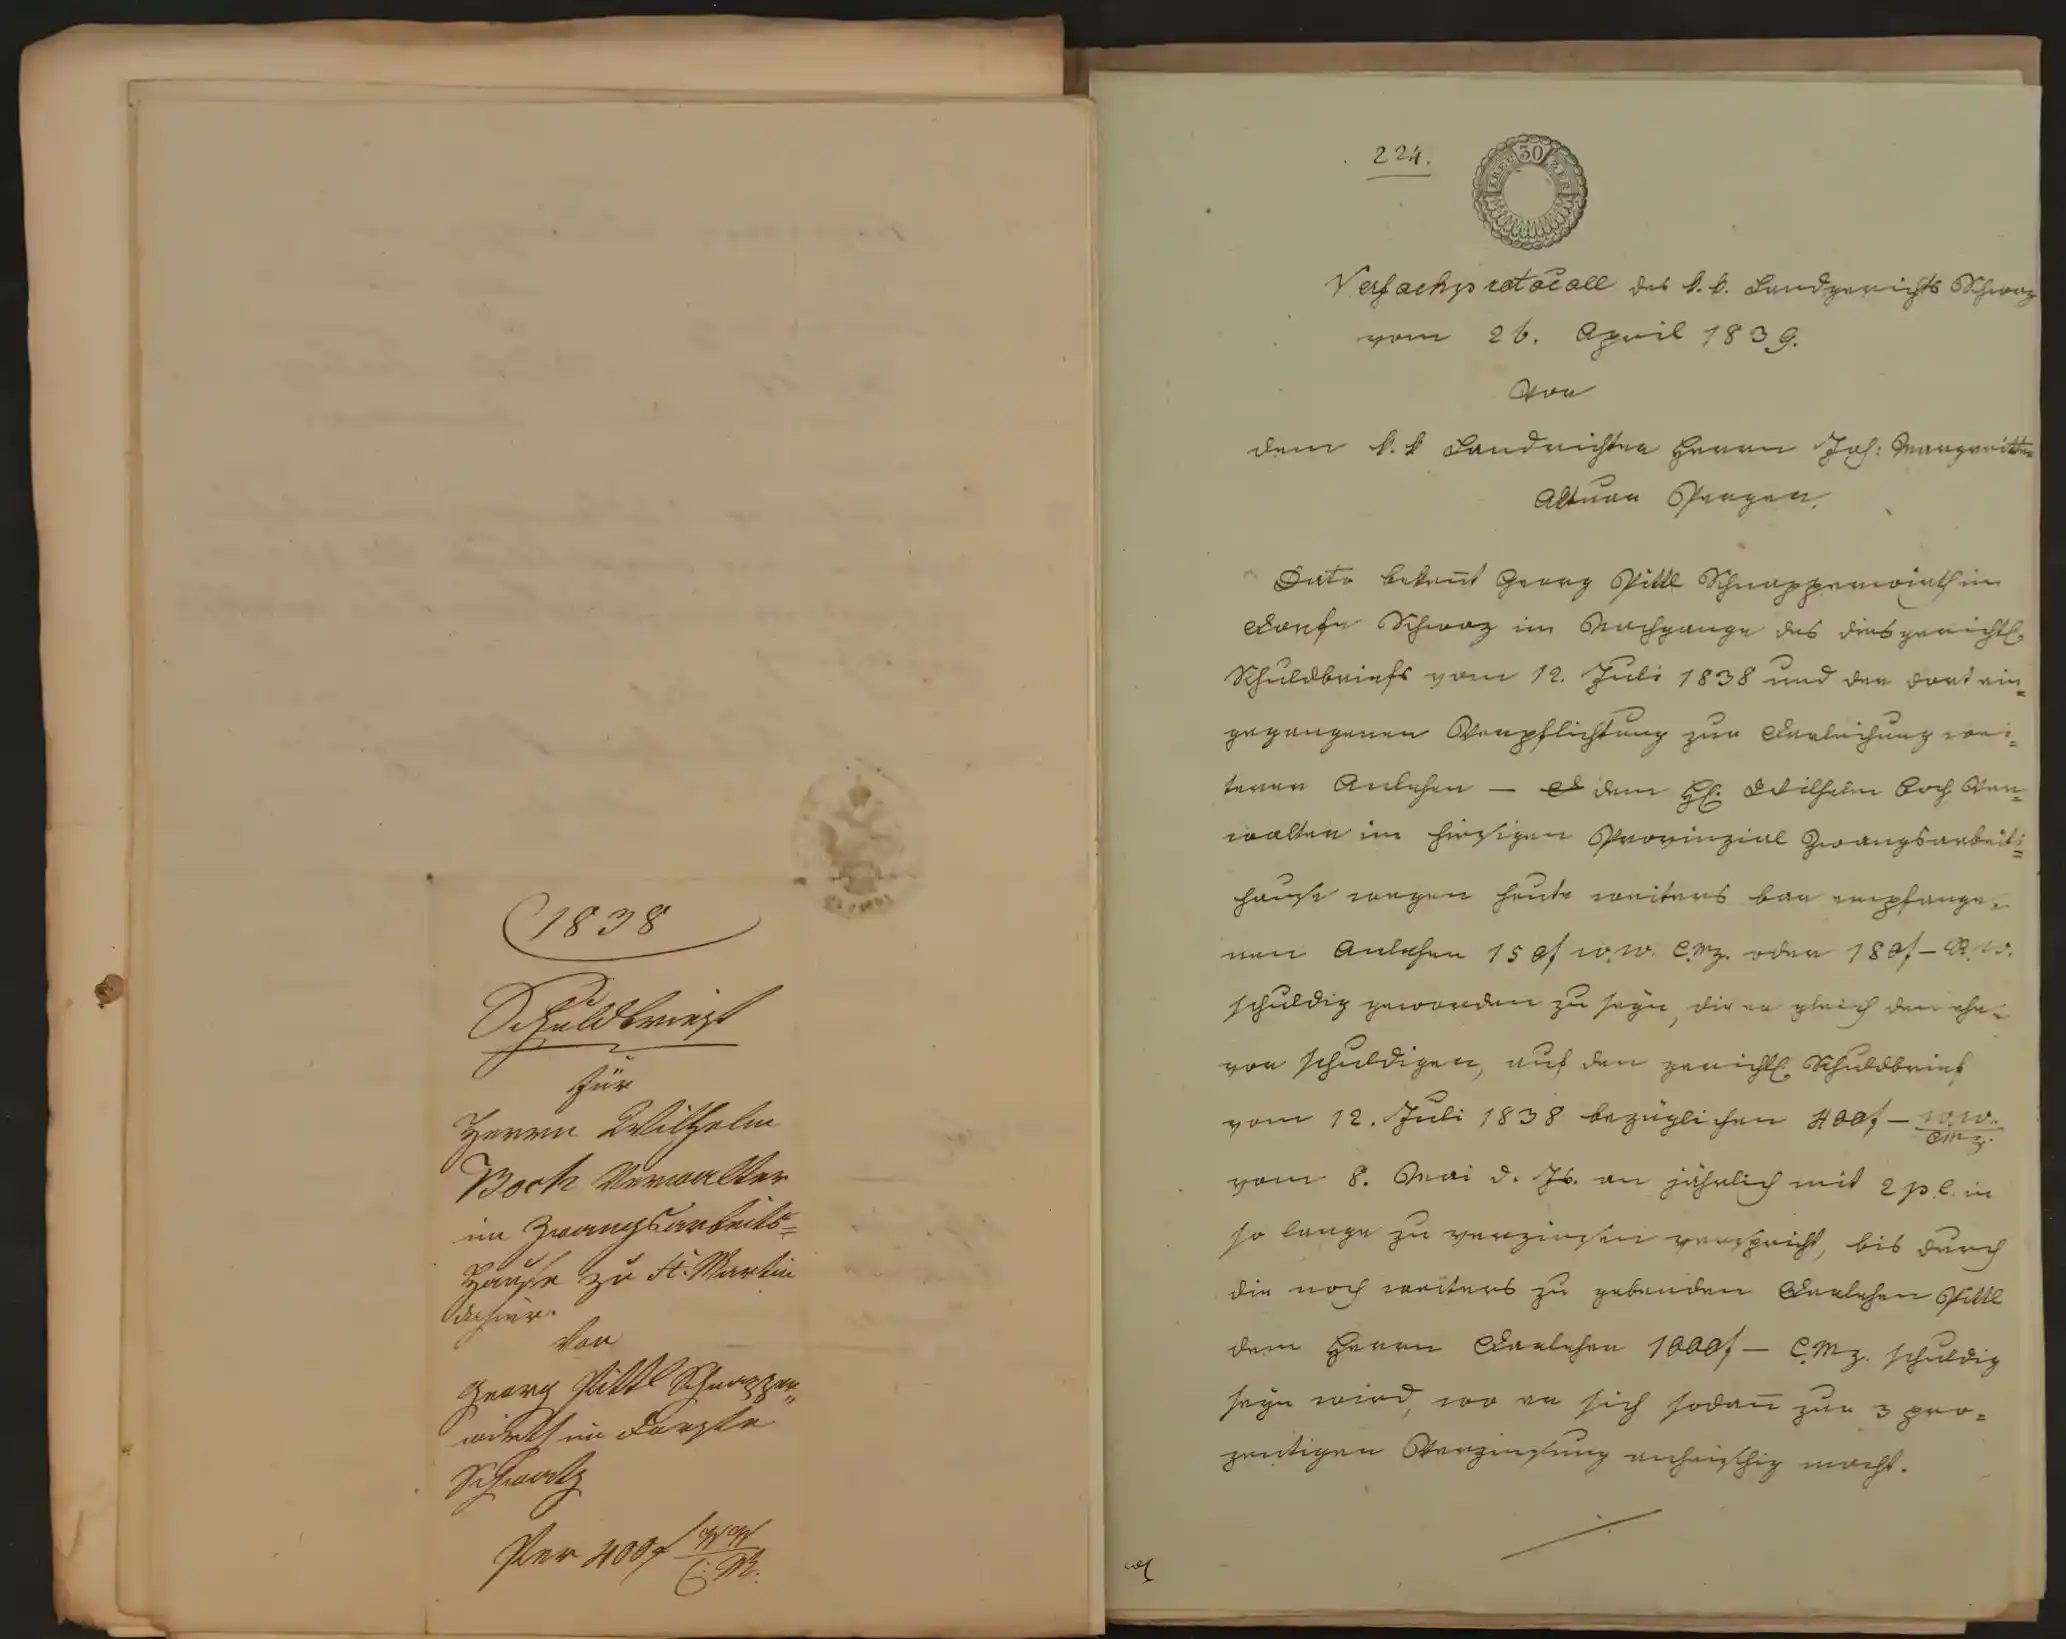 1838
Schuldbrief
für
Herrn Wilhelm
Bock Verwalter
im Zwangsarbeits=
Hause zu St. Martin
dahier.
Von
Georg Pittl Schnapper=
wirth im Dorfe
Schwatz
Per 400 f WW
C: M.
224.
30
KREU ZER
Verfachprotocoll des k. k. Landgerichts Schwaz
vom 26. April 1839.
Von
dem k. k Landrichter Herrn Joh: Margreitter
Aktuar Pergen.
Dato bekeñt Georg Pittl Schnapperwirth im
Dorfe Schwaz im Nachgange des diesgerichtl.
Schuldbriefs vom 12. Juli 1838 und der dort ein=
gegangenen Verpflichtung zur Darleihung wei=
terer Anlehen — dem H. Wilhelm Boch Ver=
walter im hiesigen Provinzial Zwangsarbeits=
hause wegen heute weiters bar empfange=
nen Anlehen 150 f W.W. C.Mz. oder 180 f — R.W.
schuldig geworden zu seyn, die er gleich den ehe=
vor schuldigen, auf den gerichtl. Schuldbrief
vom 12. Juli 1838 bezüglichen 400 f — W.W.
CMz.
vom 8. Mai d. Js. an jährlich mit 2 p C. in
so lange zu verzinsen verspricht, bis durch
die noch weiters zu gebenden Darlehen Pittl
dem Herrn Darleher 1000 f — C.Mz. schuldig
seyn wird, wo er sich sodañ zur 3 pro=
zentigen Verzinsung anheischig macht.